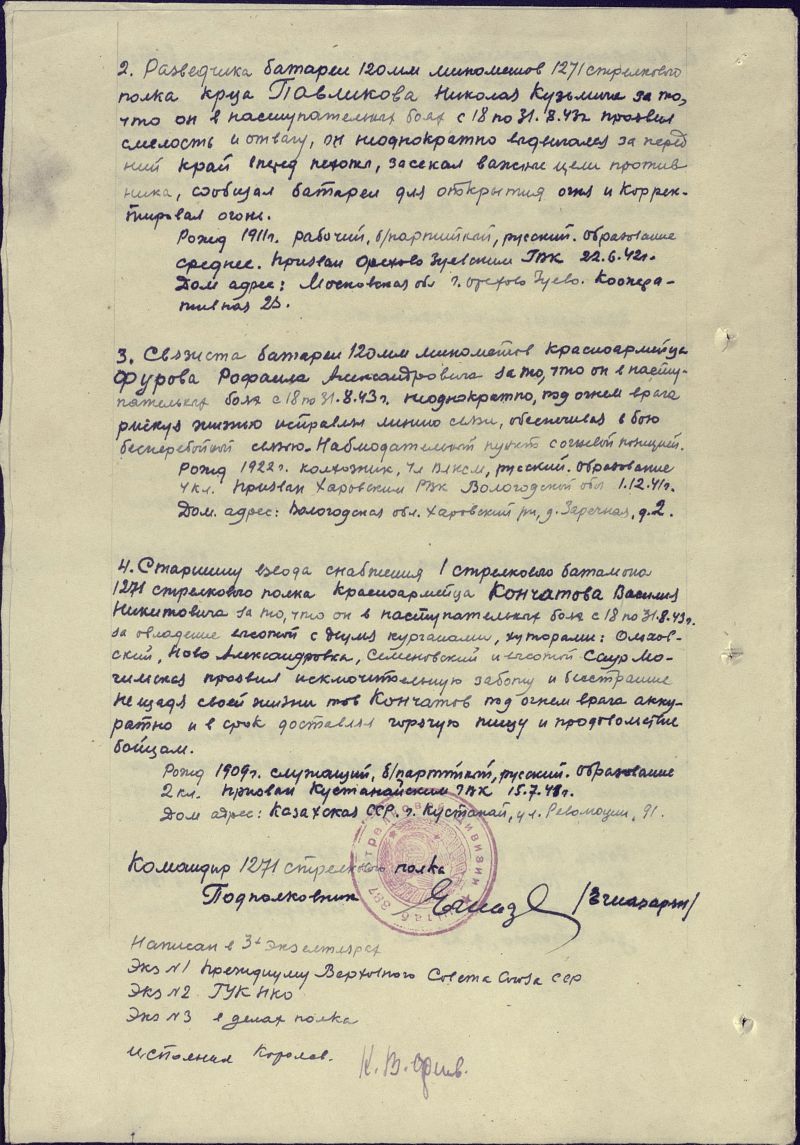 2. Разведчика батареи 120мм минометов 1271 стрелкового
полка крца Павликова Николая Кузьмича за то,
что он в наступательных боях с 18 по 31.8.43г. проявил
смелость и отвагу, он неоднократно выдвигался за перед
ний край вперед пехоты, засекал важные цели против
ника, сообщал батареи для открытия огня и коррек-
тировал огонь.
Рожд 1911г. рабочий, б/партийный, русский. образование
среднее. Призван Орехово Зуевским ГВК 22.6.42г.
Дом адрес: Московская обл г. Орехово Зуево. Коопера-
тивная 23.
3. Связиста батареи 120мм минометов красноармейца
Фурова Рофаила Александровича за то, что он в насту-
пательных боях с 18 по 31.8.43г. неоднократно, под огнем врага
рискуя жизнью исправлял линию связи, обеспечивая в бою
бесперебойной связью. Наблюдательный пункт с огневой позицией.
Рожд 1922г. колхозник, чл ВЛКСМ, русский. образование
4 кл. Призван Харовским РВК Вологодской обл 1.12.41г.
Дом. адрес: Вологодская обл. Харовский рн, д. Заречная, д. 2.
4. Старшину взвода снабжения 1 стрелкового баталиона
1271 стрелкового полка красноармейца Кончатова Василия
Никитовича за то, что он в наступательных боях с 18 по 31.8.43г.
за овладение высотой с двумя курганами, хуторами: Ольхов-
ский, Ново Александровка, Семеновский и высотой Саур Мо-
гильская проявил исключительную заботу и бесстрашие
не щадя своей жизни тов Кончатов под огнем врага акку-
ратно и в срок доставлял горячую пищу и продовольствие
бойцам.
Рожд 1909г. служащий, б/партийный, русский. образование
2 кл. Призван Кустанайским ГВК 15.7.41г.
Дом адрес: Казахская ССР. г. Кустанай, ул. Революции, 91.
Командир 1271 стрелкового полка
Подполковник /Егиазарян/
Штаб 387 стрелковой дивизии
Написан в 3х экземплярах
Экз №1 Президиуму Верховного Совета Союза ССР
Экз №2 ГУК НКО
Экз №3 в делах полка
Исполнил Королев.